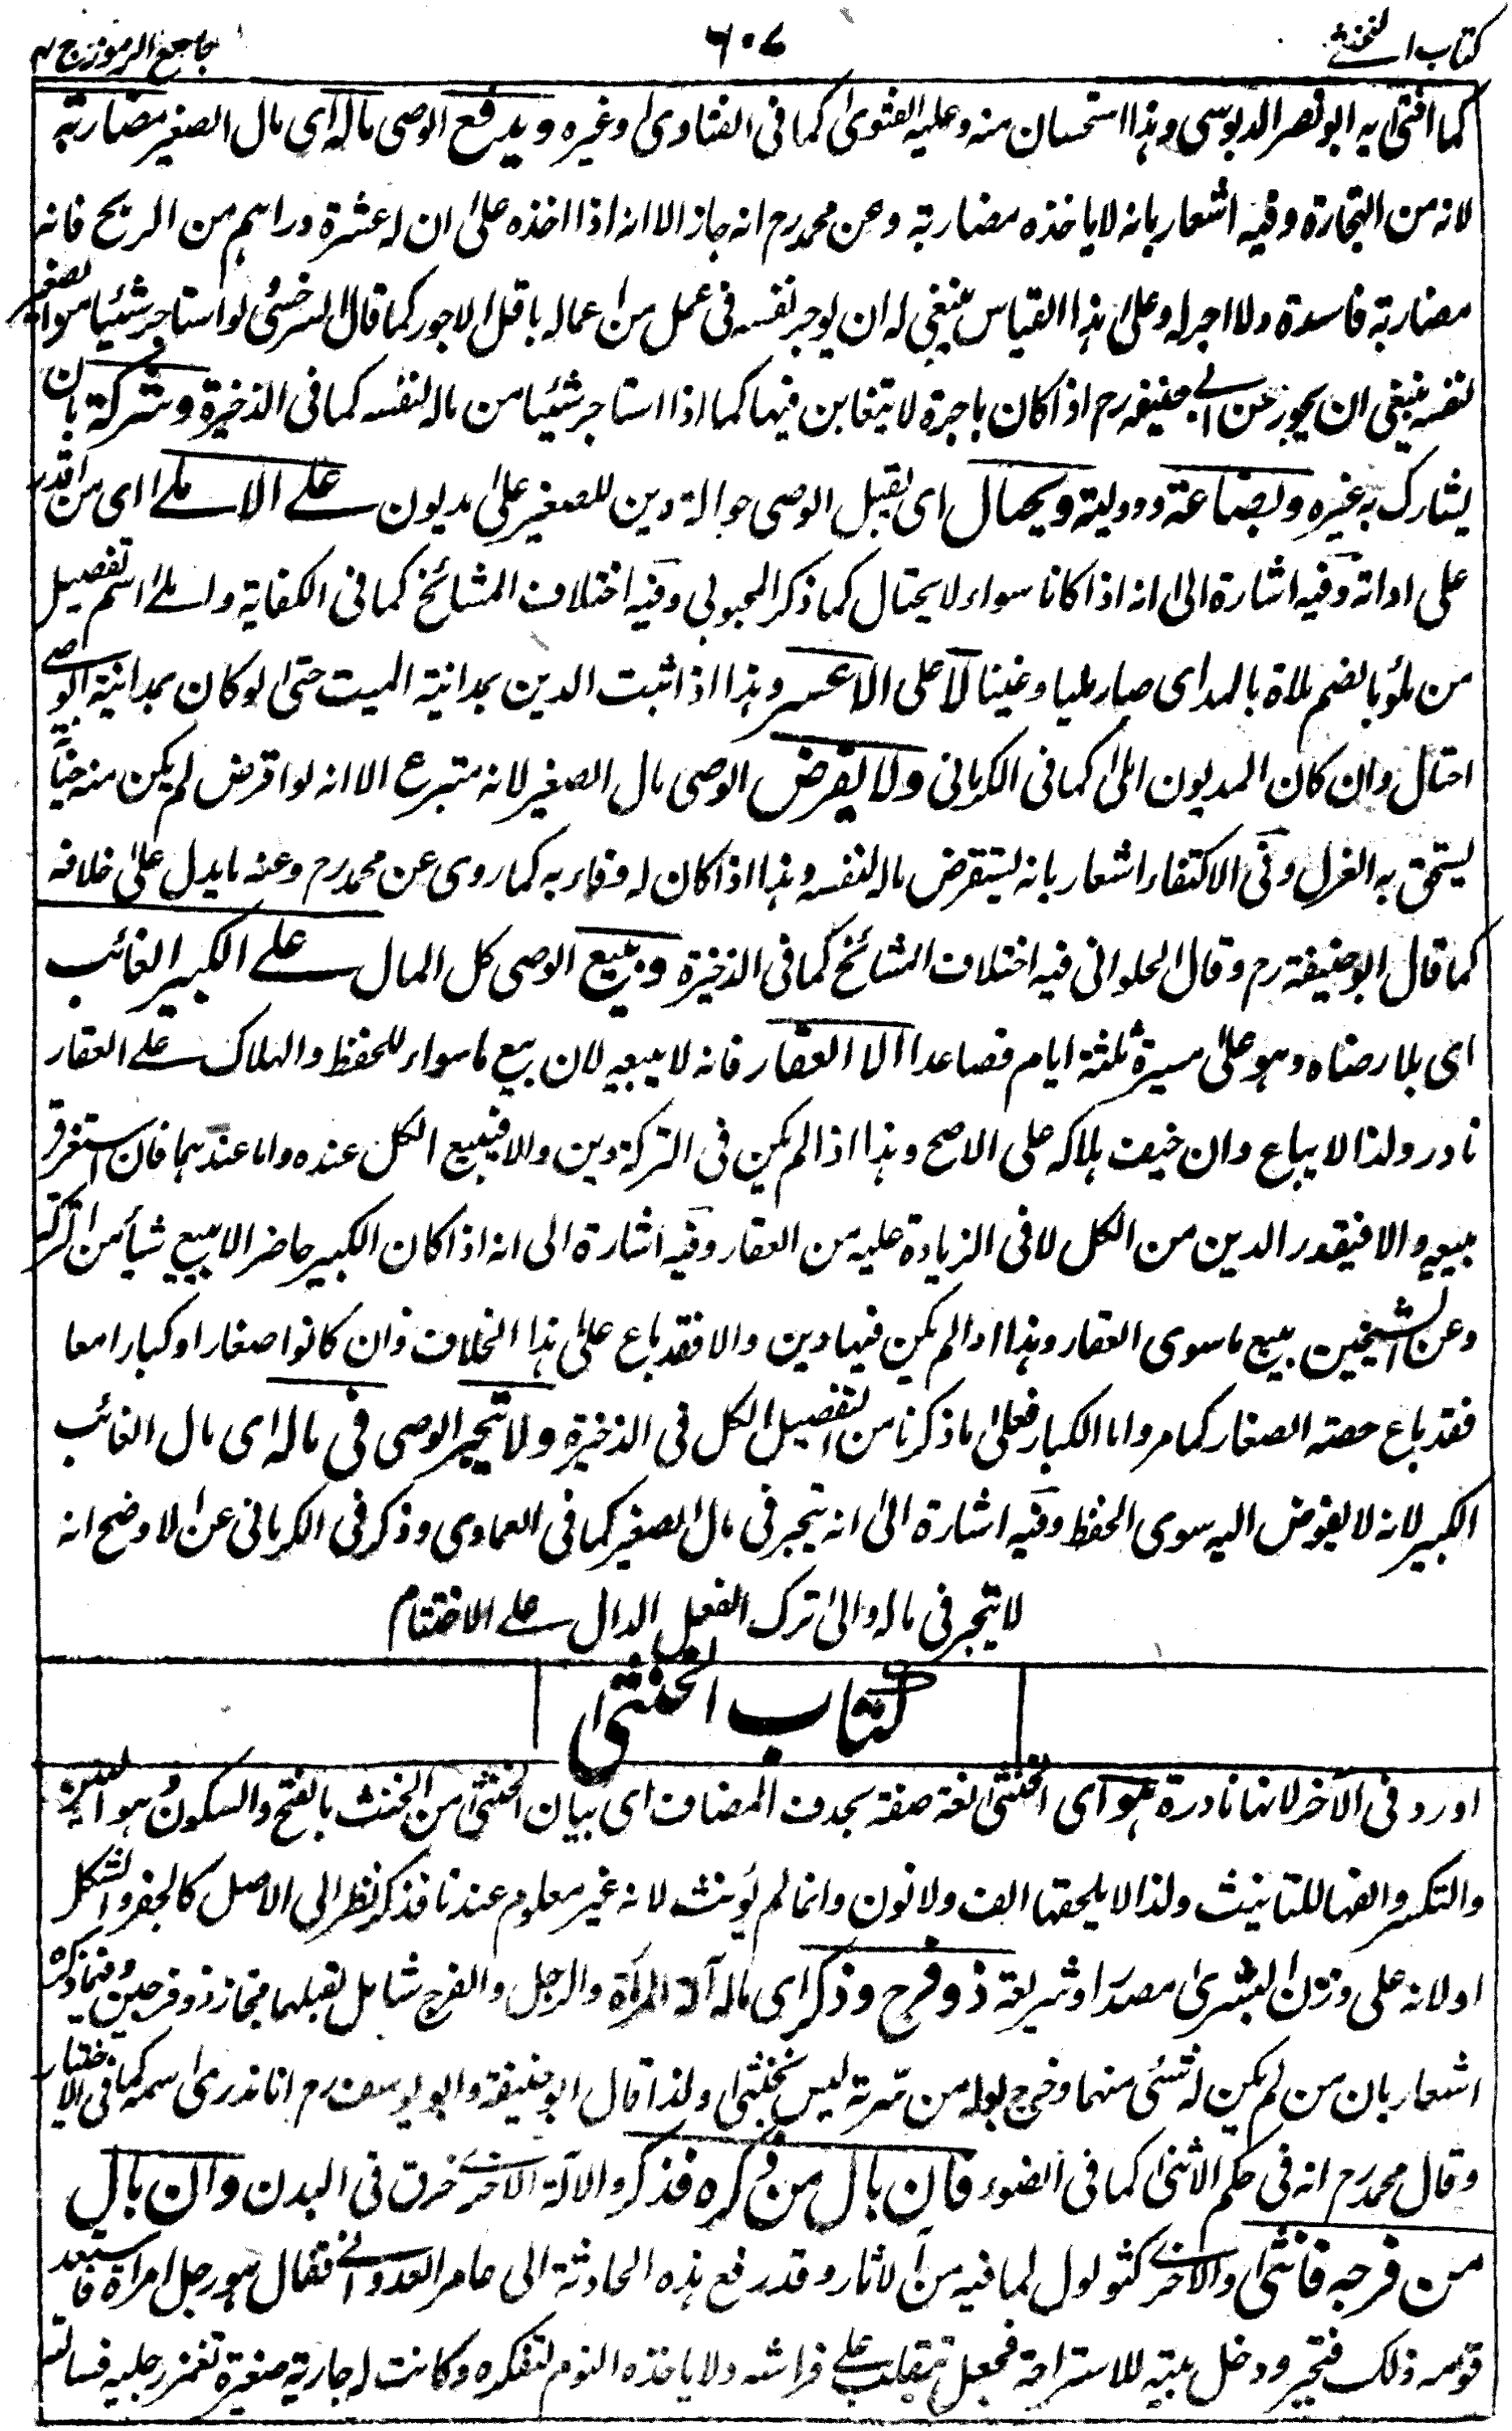 كتاب الخنثى
٦٠٧
جامع الرموز ج ٢
كما افتى به ابو نصر الدبوسى وهذا استحسان منه وعليه الفتوى كما فى الفتاوى وغيره ويدفع الوصى ماله اى مال الصغير مضاربة
لانه من التجارة وفيه اشعار بانه لا ياخذه مضاربة وعن محمد رح انه جاز الا انه اذا اخذه على ان له عشرة دراهم من الربح فانه
مضاربة فاسدة ولا اجر له وعلى هذا القياس ينبغى له ان يوجر نفسه فى عمل من اعماله باقل الاجور كما قال السرخسى لو استاجر شيئا سوا لصغير
لنفسه ينبغى ان يجوز عن ابى حنيفة رح اذا كان باجرة لا يتغابن فيها كما اذا استاجر شيئا من ماله لنفسه كما فى الذخيرة وشركة بان
يشارك به غيره وبضاعة ووديعة ويحتال اى يقبل الوصى حوالة دين للصغير على مديون على الاملا اى من اقدر
على ادائه وفيه اشارة الى انه اذا كانا سواء لا يحتال كما ذكر المحبوبى وفيه اختلاف المشائخ كما فى الكفاية واملى اسم تفضيل
من ملؤ بالضم ملاة بالمد اى صار مليا وغنيا لا على الاعسر وهذا اذا ثبت الدين بمداينة الميت حتى لو كان بمداينة الوصى
احتال وان كان المديون املى كما فى الكرمانى ولا يقرض الوصى مال الصغير لانه متبرع الا انه لو اقرض لم يكن منه
يستحق به العزل وفى الاكتفاء اشعار بانه يستقرض ماله لنفسه وهذا اذا كان له وفاء به كما روى عن محمد رح وعنه ما يدل على خلافه
كما قال ابو حنيفة رح وقال الحلوانى فيه اختلاف المشائخ كما فى الذخيرة ويبيع الوصى كل المال على الكبير الغائب
اى بلا رضاه وهو على مسيرة ثلثة ايام فصاعدا الا العقار فانه لا يبيعه لان بيع ما سواه للحفظ والهلاك على العقار
نادر ولذا لا يباع وان خيف هلاكه على الاصح وهذا اذا لم يكن فى التركة دين والا فيبيع الكل عنده واما عندهما فان استغرق
يبيعه والا فبقدر الدين من الكل لا فى الزيادة عليه من العقار وفيه اشارة الى انه اذا كان الكبير حاضرا لا يبيع شيأ من التركة
وعن الشيخين يبيع ما سوى العقار وهذا اذا لم يكن فيها دين والا فقد باع على هذا الخلاف وان كانوا صغارا وكبارا معا
فقد باع حصة الصغار كما مر واما الكبار فعلى ما ذكرنا من التفصيل الكل فى الذخيرة ولا يتجر الوصى فى ماله اى مال الغائب
الكبير لانه لا يفوض اليه سوى الحفظ وفيه اشارة الى انه يتجر فى مال الصغير كما فى العمادى وذكر فى الكرمانى عن الاوضح انه
لا يتجر فى ماله والى ترك الفعل الدال على الاختتام
كتاب الخنثى
اورد فى الآخر لانها نادرة هو اى الخنثى لغة صفة بحذف المضاف اى بيان الخنثى من الخنث بالفتح والسكون وهو اللين
والتكسر والفها للتانيث ولذا لا يلحقها الف ولا نون وانما لم يؤنث لانه غير معلوم عندنا فذكر نظرا الى الاصل كالجفر والشكل
او لانه على وزن البشرى مصدرا وشريعة ذو فرج وذكر اى ماله آلة المرأة والرجل والفرج شامل لقبلهما فجاز ذو فرجين وفيما ذكر
اشعار بان من لم يكن له شئ منهما وخرج بوله من سرته ليس بخنثى ولذا قال ابو حنيفة وابو يوسف رح انا ندرى اسمه كما فى الاختيار
وقال محمد رح انه فى حكم الانثى كما فى الضوء فان بال من ذكره فذكر والآلة الاخرى خرق فى البدن وان بال
من فرجه فانثى والاخرى كثولول لما فيه من الآثار وقد رفع هذه الحادثة الى عامر العدوانى فقال هو رجل امراة فاستبعد
قومه ذلك فتحير ودخل بيته للاستراحة فجعل يتقلب على فراشه ولا ياخذه النوم لتفكره وكانت له جارية صغيرة تغمز رجليه فسالته